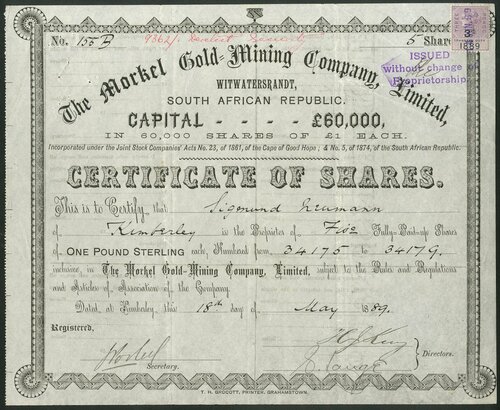 No. 155 B
5 Shares
ISSUED
without change of
Proprietorship.
1889
The Morkel Gold-Mining Company, Limited,
WITWATERSRANDT,
SOUTH AFRICAN REPUBLIC.
CAPITAL - - - - £60,000,
IN 60,000 SHARES OF £1 EACH.
Incorporated under the Joint Stock Companies' Acts No. 23, of 1861, of the Cape of Good Hope; & No. 5, of 1874, of the South African Republic.
CERTIFICATE OF SHARES.
This is to Certify, that Sigmund Neumann
of Kimberley is the Proprietor of Five Fully-Paid-up Shares
of ONE POUND STERLING each, Numbered from 34175 to 34179.
inclusive, in The Morkel Gold-Mining Company, Limited, subject to the Rules and Regulations
and Articles of Association of the Company.
Dated, at Kimberley, this 18th day of May 1889.
Registered,
Secretary.
Directors.
T. H. GROCOTT, PRINTER, GRAHAMSTOWN.